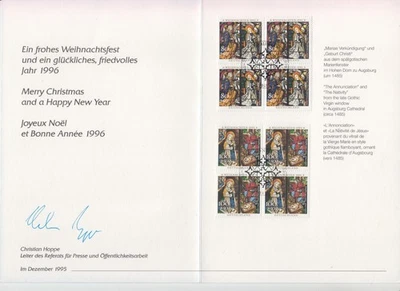 Ein frohes Weihnachtsfest
und ein glückliches, friedvolles
Jahr 1996
Merry Christmas
and a Happy New Year
Joyeux Noël
et Bonne Année 1996
Christian Hoppe
Leiter des Referats für Presse und Öffentlichkeitsarbeit
Im Dezember 1995
„Mariae Verkündigung" und
„Geburt Christi"
aus dem spätgotischen
Marienfenster
im Hohen Dom zu Augsburg
(um 1495)
"The Annunciation" and
"The Nativity"
from the late Gothic
Virgin window
in Augsburg Cathedral
(circa 1495)
«L'Annonciation»
et «La Nativité de Jésus»
provenant du vitrail de
la Vierge Marie en style
gothique flamboyant, ornant
la Cathédrale d'Augsbourg
(vers 1495)